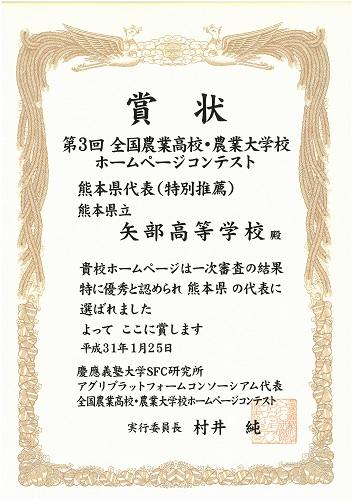 賞状
第3回 全国農業高校・農業大学校
ホームページコンテスト
熊本県代表（特別推薦）
熊本県立
矢部高等学校 殿
貴校ホームページは一次審査の結果
特に優秀と認められ 熊本県 の代表に
選ばれました
よって ここに賞します
平成31年1月25日
慶應義塾大学SFC研究所
アグリプラットフォームコンソーシアム代表
全国農業高校・農業大学校ホームページコンテスト
実行委員長 村井 純